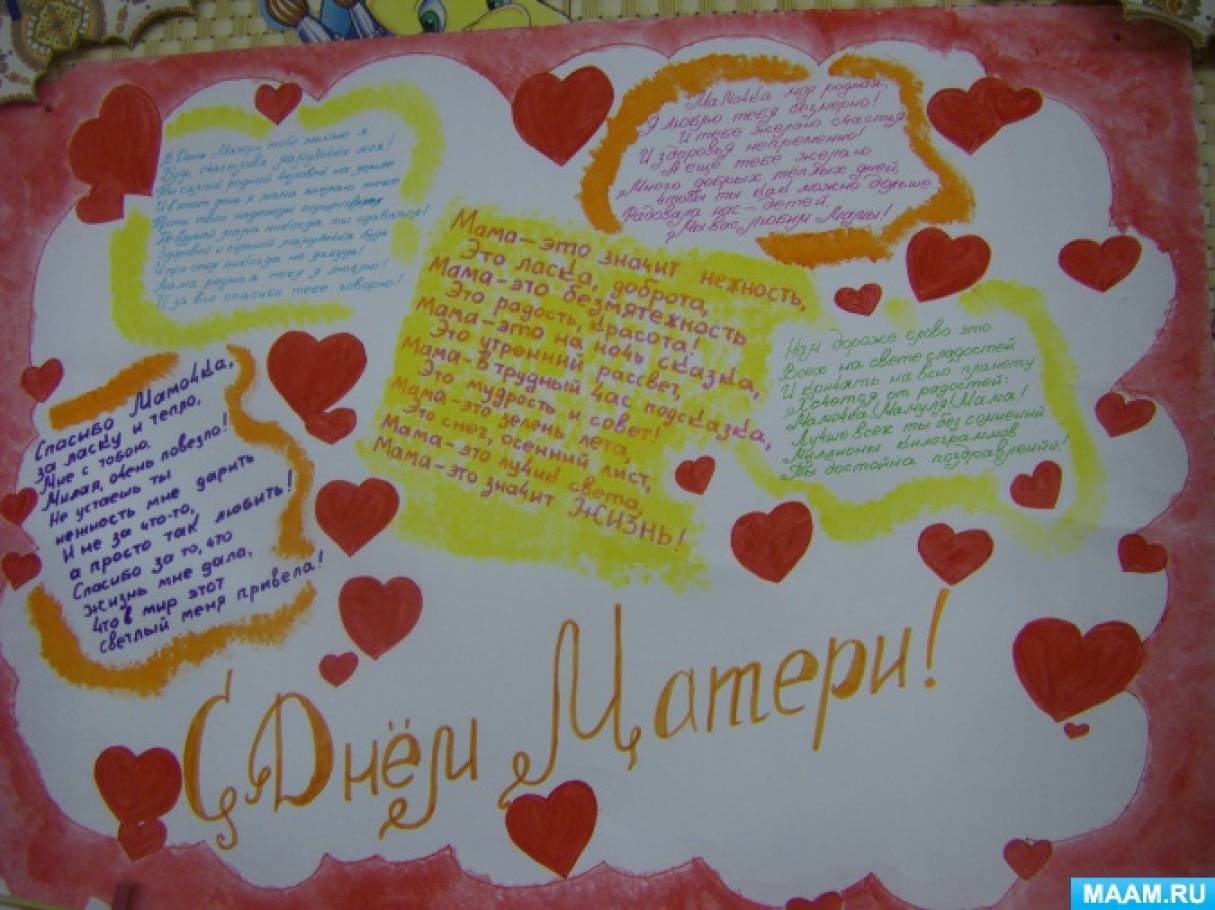 В День Матери тебе желаю я
Будь счастлива мамулечка моя!
Ты самый родной человек на земле
И в этот день я мама желаю тебе
Пусть твои надежды осуществятся
Не вздумай мама никогда ты сдаваться!
Здоровой и сильной мамулечка будь
И про себя никогда не забудь!
Мама родная тебя я люблю!
И за всё спасибо тебе говорю!
Мамочка моя родная,
Я люблю тебя безмерно!
И тебе желаю счастья
И здоровья непременно!
А ещё тебе желаю
Много добрых, тёплых дней,
Чтобы ты как можно дольше
Радовала нас - детей.
Мы вас любим Мамы!
Мама - это значит нежность,
Это ласка, доброта,
Мама - это безмятежность
Это радость, красота!
Мама - это на ночь сказка,
Это утренний рассвет,
Мама - в трудный час подсказка,
Это мудрость и совет!
Мама - это зелень лета,
Это снег, осенний лист,
Мама - это лучик света,
Мама - это значит ЖИЗНЬ!
Нам дороже слово это
Всех на свете сладостей
И кричать на всю планету
Хочется от радостей:
Мамочка! Мамуля! Мама!
Лучше всех ты без сомнений
Миллионы килограммов
Ты достойна поздравлений!
Спасибо Мамочка,
за ласку и тепло,
Мне с тобою,
Милая, очень повезло!
Не устаешь ты
нежность мне дарить
И не за что-то,
а просто так любить!
Спасибо за то, что
жизнь мне дала,
Что в мир этот
светлый меня привела!
С Днём Матери!
MAAM.RU